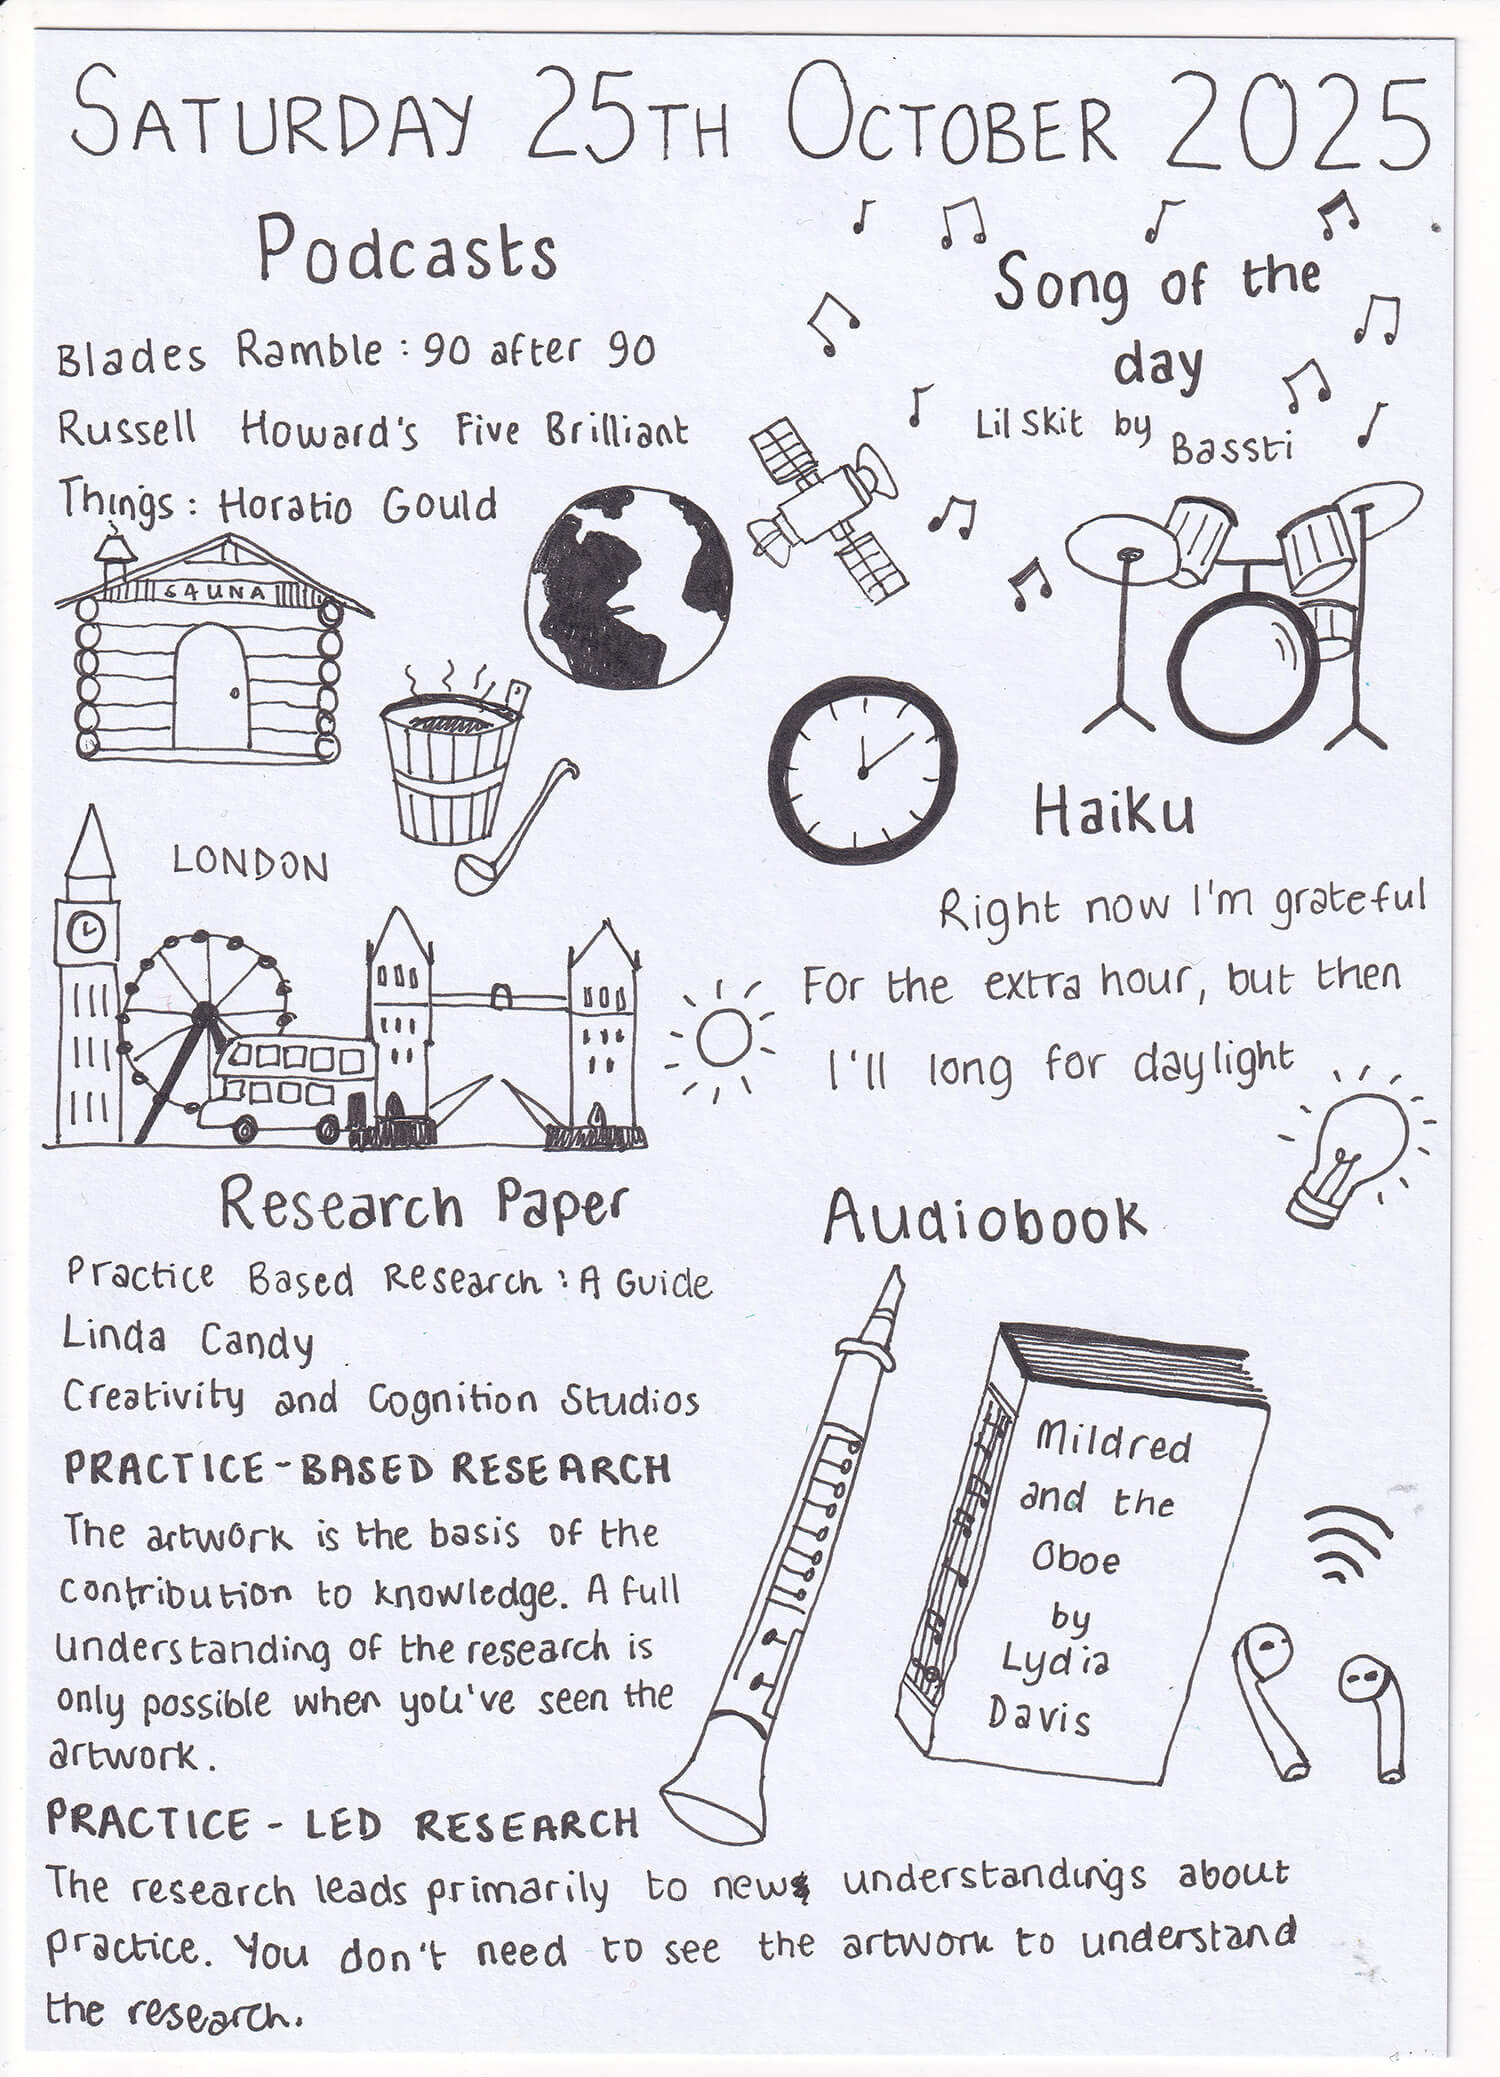 SATURDAY 25TH OCTOBER 2025
Podcasts
Blades Ramble: 90 after 90
Russell Howard's Five Brilliant
Things: Horatio Gould
SAUNA
LONDON
Song of the
day
Lil Skit by
Bassti
Haiku
Right now I'm grateful
For the extra hour, but then
I'll long for daylight
Research Paper
Practice Based Research: A Guide
Linda Candy
Creativity and Cognition Studios
PRACTICE-BASED RESEARCH
The artwork is the basis of the
contribution to knowledge. A full
understanding of the research is
only possible when you've seen the
artwork.
PRACTICE - LED RESEARCH
The research leads primarily to new understandings about
practice. You don't need to see the artwork to understand
the research.
Audiobook
Mildred
and the
Oboe
by
Lydia
Davis